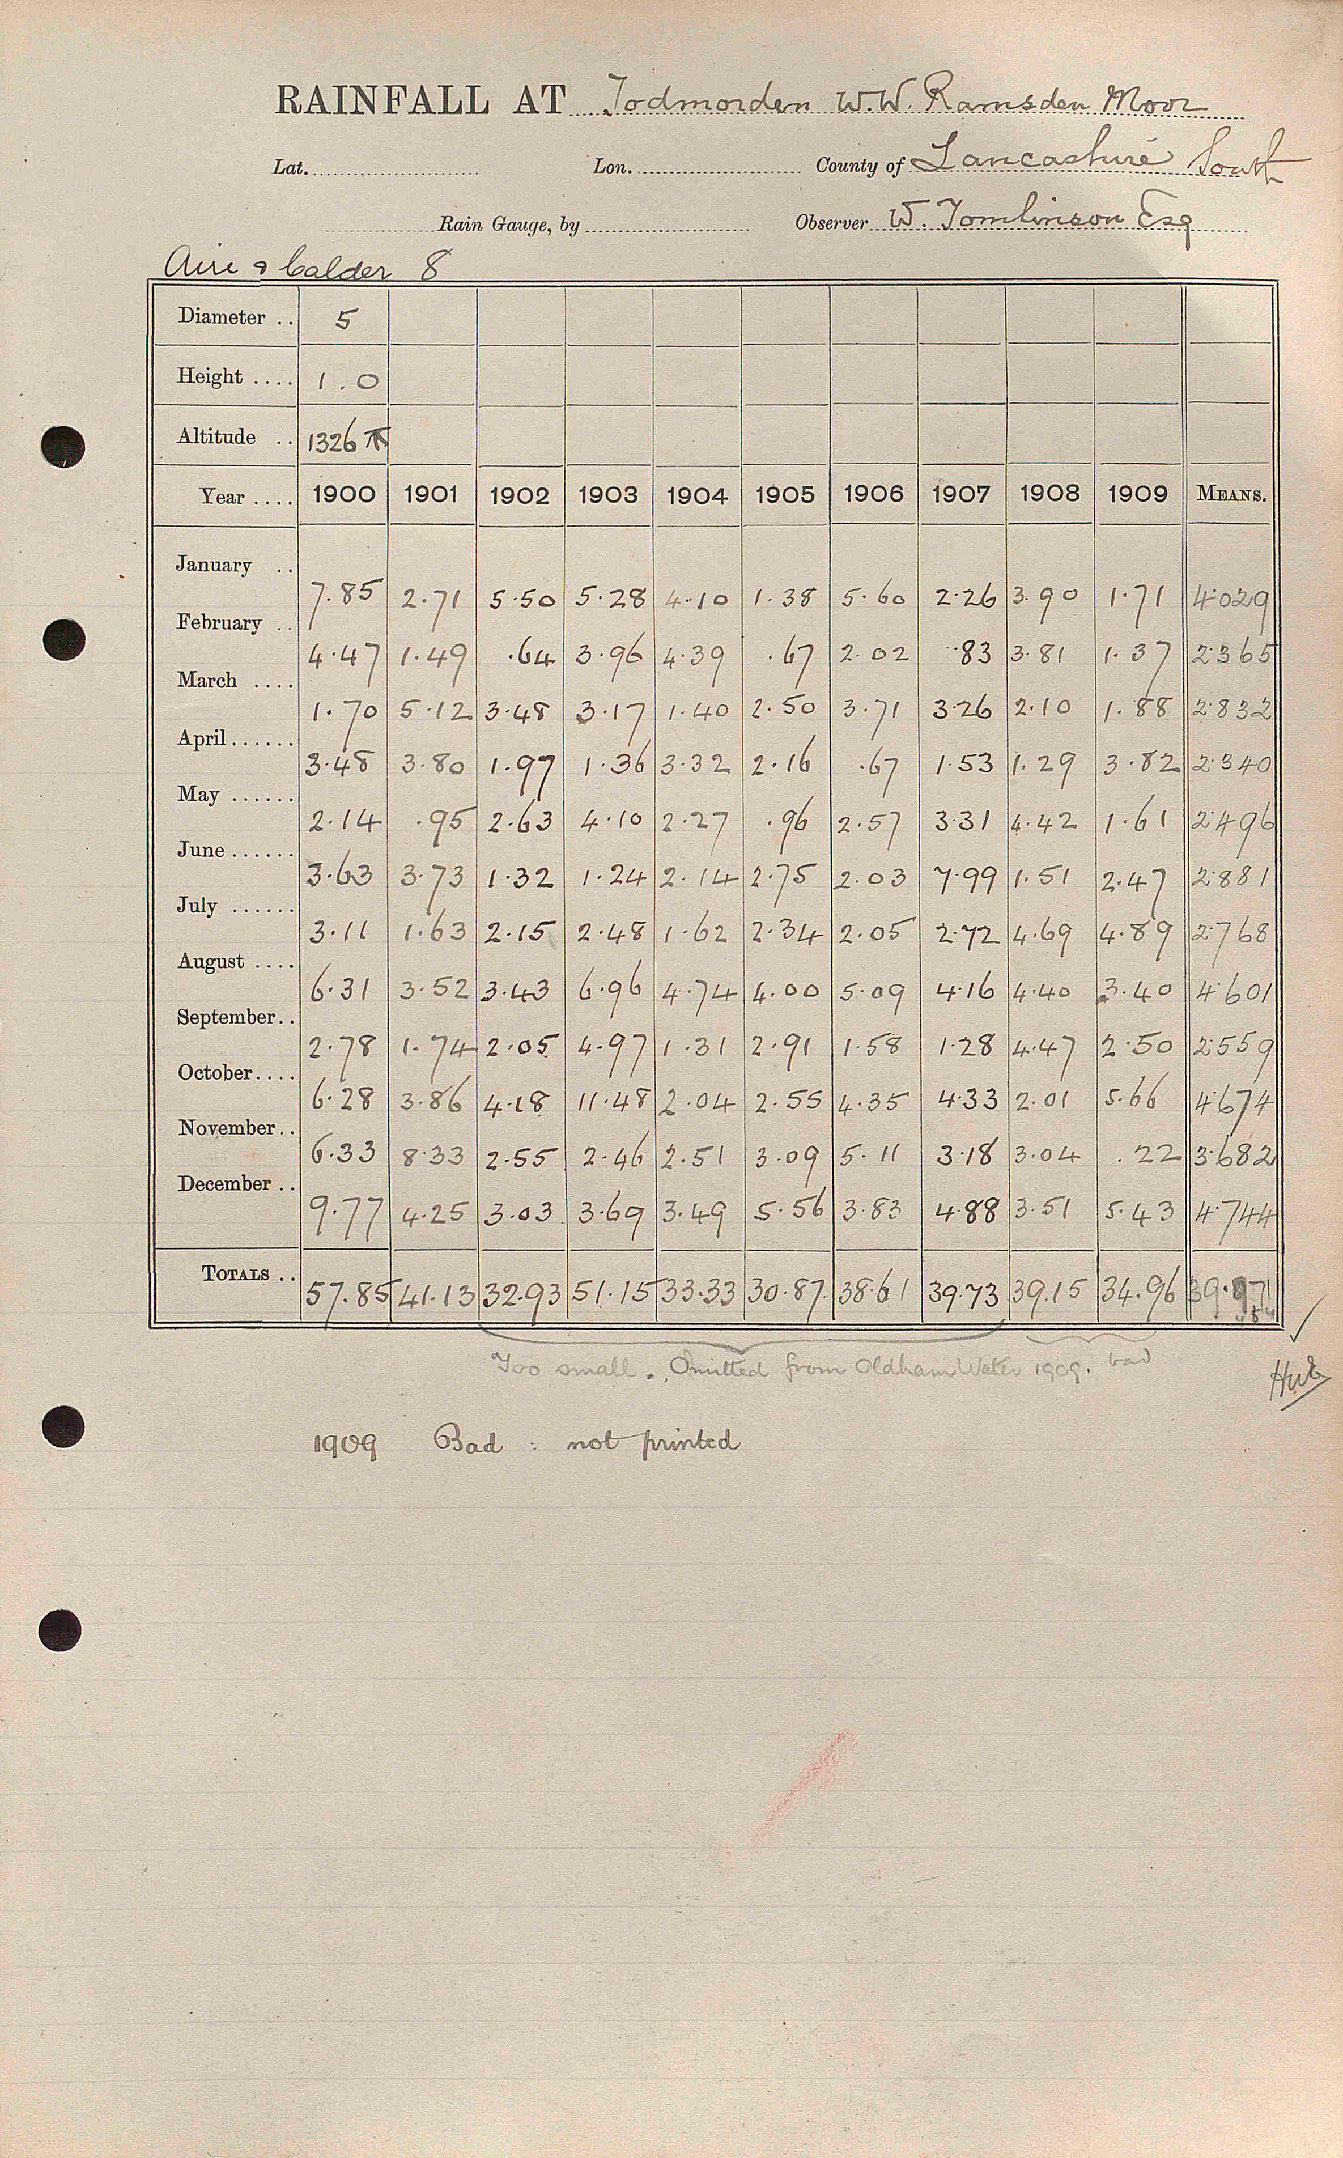 RAINFALL AT Todmorden W.W. Ramsden Moor
Lat. Lon. County of Lancashire South
Rain Gauge, by Observer W. Tomlinson Esq
Aire & Calder 8
Diameter .. 5
Height .... 1.0
Altitude .. 1326
Year .... 1900 1901 1902 1903 1904 1905 1906 1907 1908 1909 MEANS.
January .. 7.85 2.71 5.50 5.28 4.10 1.38 5.60 2.26 3.90 1.71 4.029
February .. 4.47 1.49 .64 3.96 4.39 .67 2.02 .83 3.81 1.37 2.365
March .... 1.70 5.12 3.48 3.17 1.40 2.50 3.71 3.26 2.10 1.88 2.832
April ...... 3.48 3.80 1.97 1.36 3.32 2.16 .67 1.53 1.29 3.82 2.340
May ...... 2.14 .95 2.63 4.10 2.27 .96 2.57 3.31 4.42 1.61 2.496
June ...... 3.63 3.73 1.32 1.24 2.14 2.75 2.03 7.99 1.51 2.47 2.881
July ...... 3.11 1.63 2.15 2.48 1.62 2.34 2.05 2.72 4.69 4.89 2.768
August .... 6.31 3.52 3.43 6.96 4.74 4.00 5.09 4.16 4.40 3.40 4.601
September.. 2.78 1.74 2.05 4.97 1.31 2.91 1.58 1.28 4.47 2.50 2.559
October.... 6.28 3.86 4.18 11.48 2.04 2.55 4.35 4.33 2.01 5.66 4.674
November.. 6.33 8.33 2.55 2.46 2.51 3.09 5.11 3.18 3.04 .22 3.682
December .. 9.77 4.25 3.03 3.69 3.49 5.56 3.83 4.88 3.51 5.43 4.744
TOTALS .. 57.85 41.13 32.93 51.15 33.33 30.87 38.61 39.73 39.15 34.96 39.971
Too small. Omitted from Oldham Water 1909. bad
1909 Bad : not printed